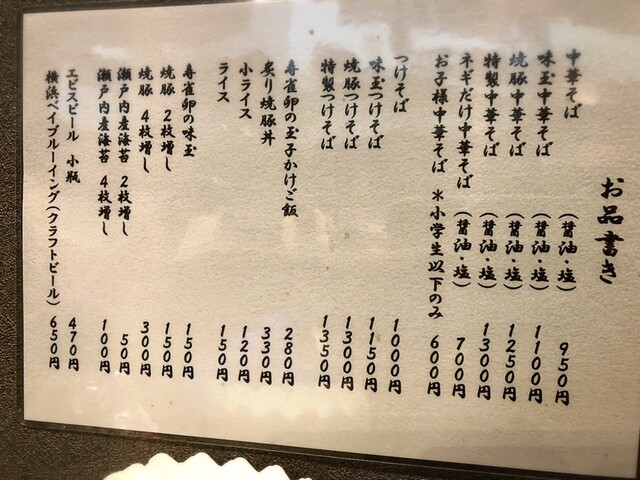 お品書き
中華そば (醤油・塩) 950円
味玉中華そば (醤油・塩) 1100円
焼豚中華そば (醤油・塩) 1250円
特製中華そば (醤油・塩) 1300円
ネギだけ中華そば (醤油・塩) 700円
お子様中華そば ＊小学生以下のみ 600円
つけそば 1000円
味玉つけそば 1150円
焼豚つけそば 1300円
特製つけそば 1350円
寿雀卵の玉子かけご飯 280円
炙り焼豚丼 330円
小ライス 120円
ライス 150円
寿雀卵の味玉 150円
焼豚 2枚増し 150円
焼豚 4枚増し 300円
瀬戸内産海苔 2枚増し 50円
瀬戸内産海苔 4枚増し 100円
エビスビール 小瓶 470円
横浜ベイブルーイング(クラフトビール) 650円